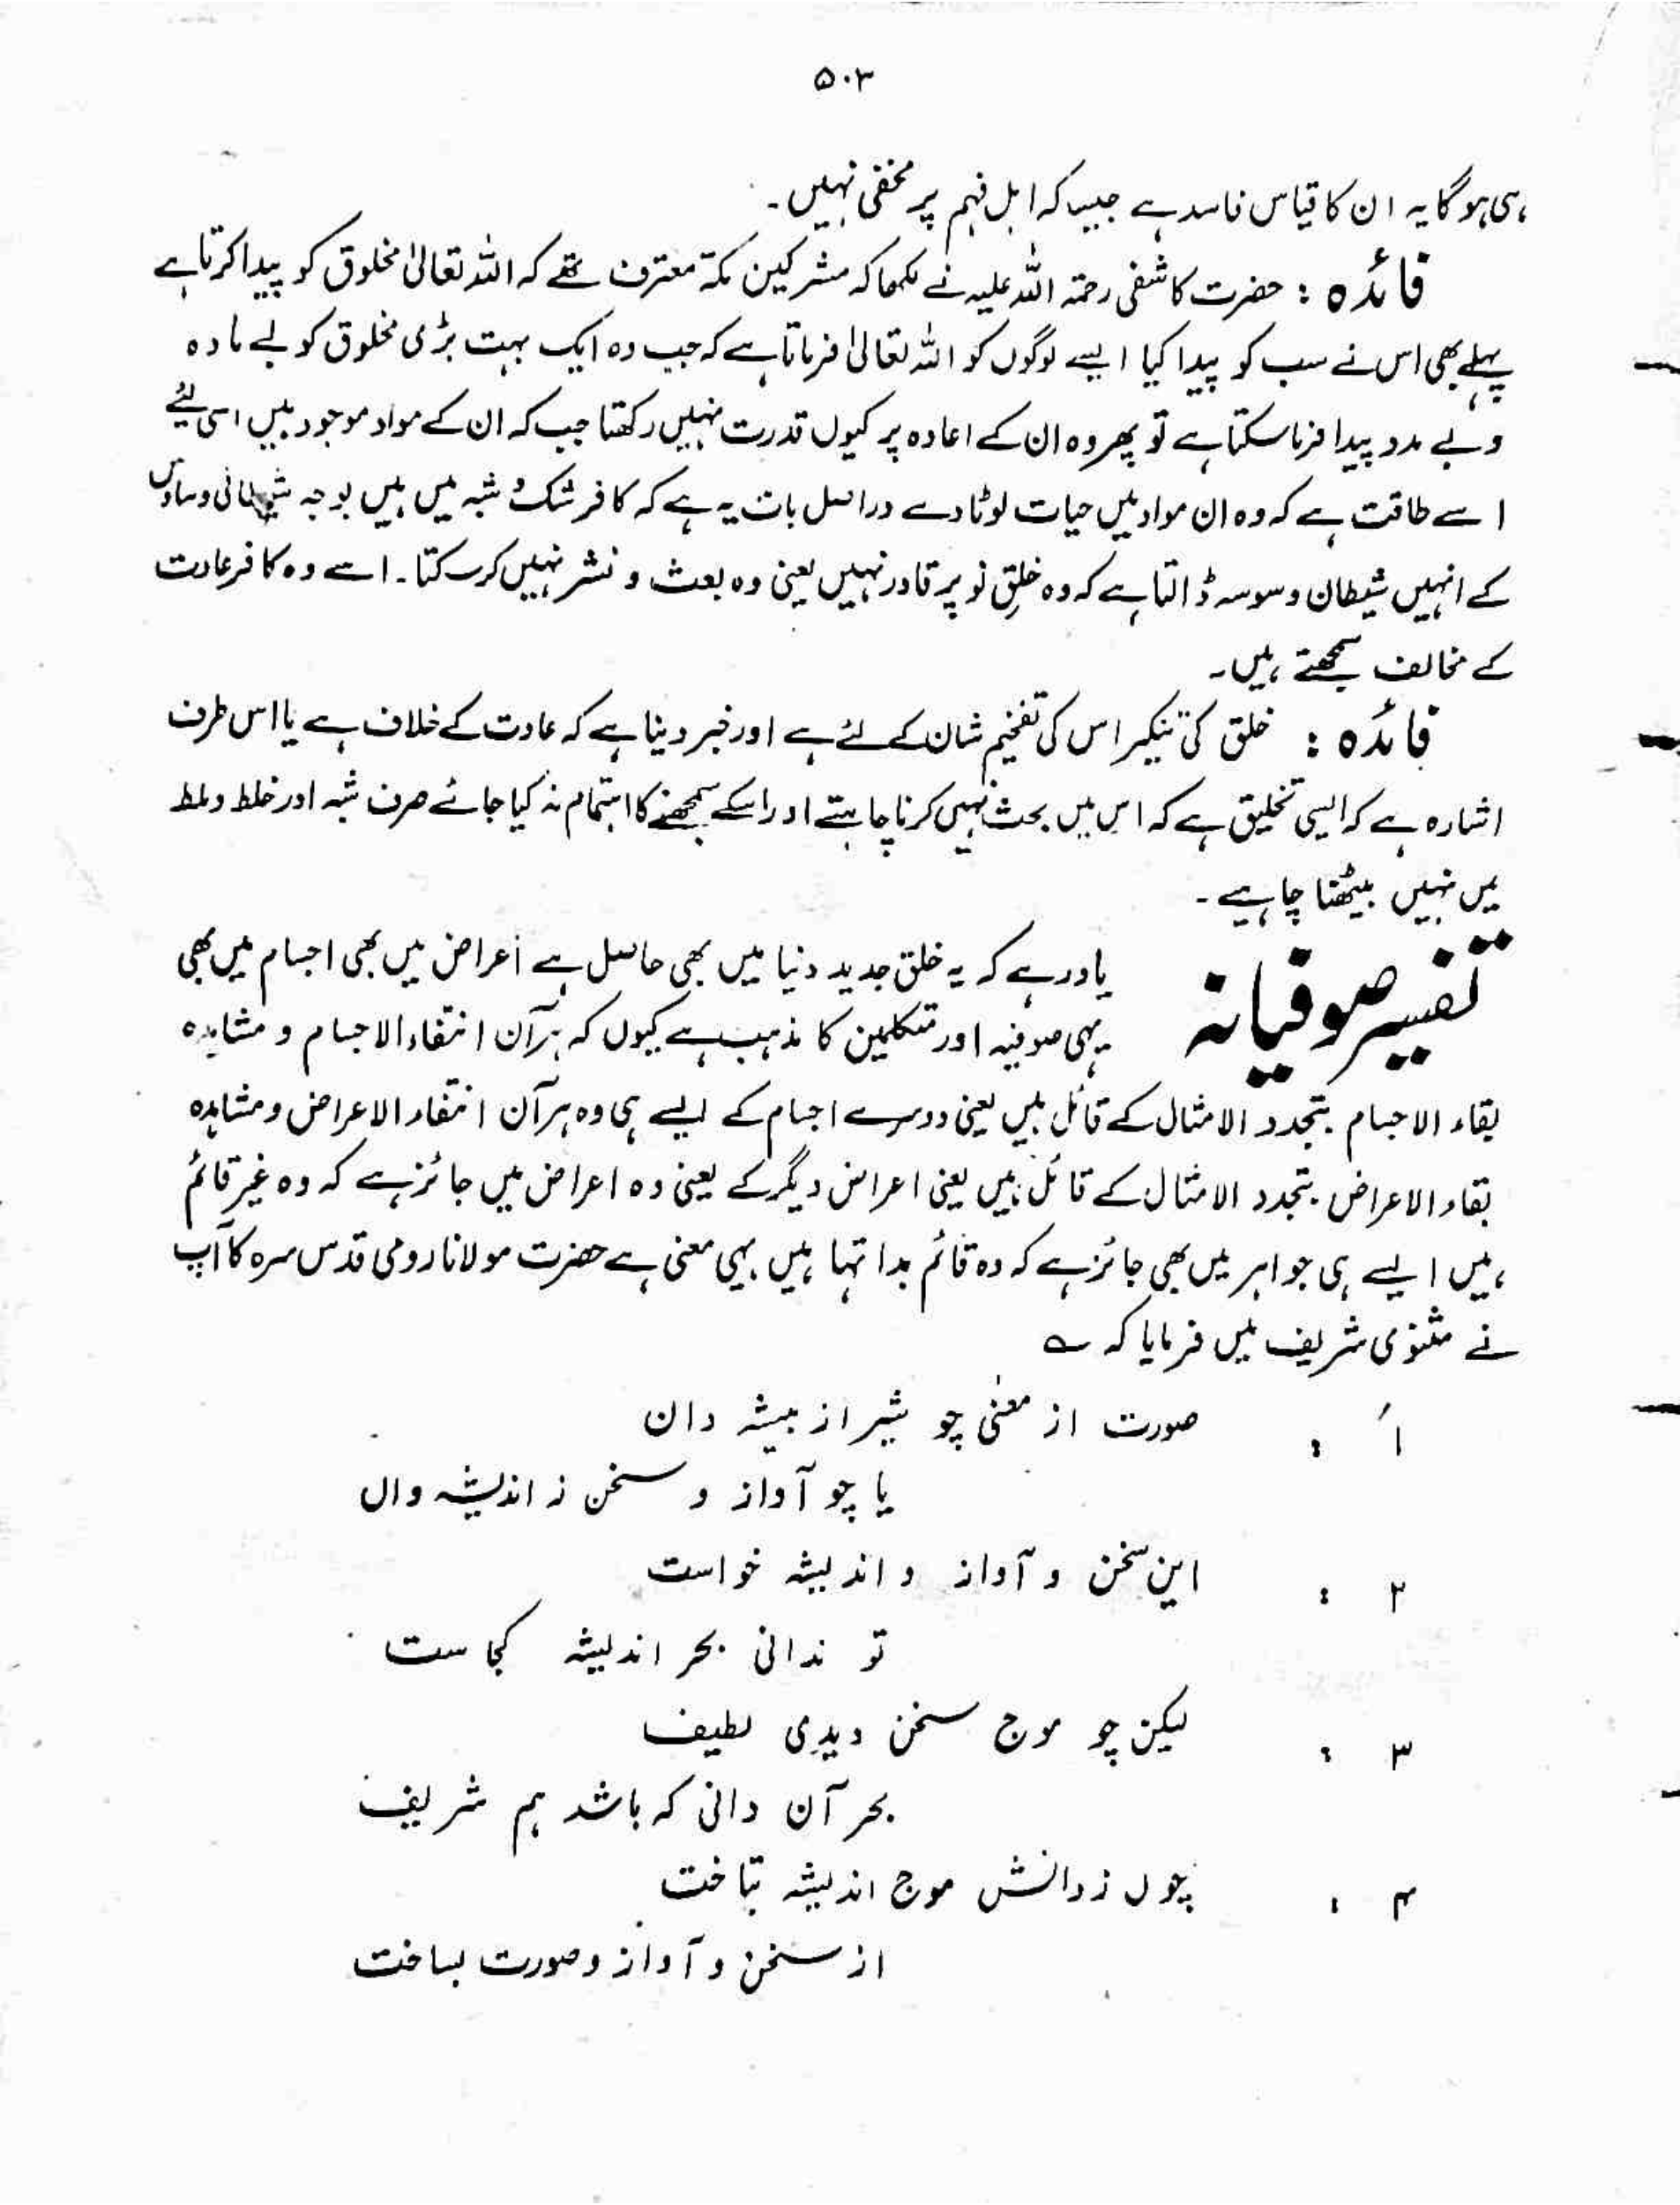 ۵۰۳
ہی ہوگا یہ ان کا قیاس فاسد ہے جیسا کہ اہل فہم پر مخفی نہیں۔
فائدہ : حضرت کاشفی رحمۃ اللہ علیہ نے لکھا کہ مشرکین مکہ معترف تھے کہ اللہ تعالیٰ مخلوق کو پیدا کرتا ہے
پہلے بھی اس نے سب کو پیدا کیا ایسے لوگوں کو اللہ تعالیٰ فرماتا ہے کہ جب وہ ایک بہت بڑی مخلوق کو بے مادہ
و بے مدد پیدا فرما سکتا ہے تو پھر وہ ان کے اعادہ پر کیوں قدرت نہیں رکھتا جب کہ ان کے مواد موجود ہیں اسی لئے
اسے طاقت ہے کہ وہ ان مواد میں حیات لوٹا دے دراصل بات یہ ہے کہ کافر شک و شبہ میں ہیں بوجہ شیطانی وساوس
کے انہیں شیطان وسوسہ ڈالتا ہے کہ وہ خلقِ نو پر قادر نہیں یعنی وہ بعث و نشر نہیں کر سکتا۔ اسے وہ کافر عادت
کے مخالف سمجھتے ہیں۔
فائدہ : خلق کی تنکیر اس کی تفخیم شان کے لئے ہے اور خبر دینا ہے کہ عادت کے خلاف ہے یا اس طرف
اشارہ ہے کہ ایسی تخلیق ہے کہ اس میں بحث نہیں کرنا چاہتے اور اسکے سمجھنے کا اہتمام نہ کیا جائے صرف شبہ اور خلط ملط
میں نہیں بیٹھنا چاہیے۔
تفسیر صوفیانہ
یاد رہے کہ یہ خلق جدید دنیا میں بھی حاصل ہے اعراض میں بھی اجسام میں بھی
یہی صوفیہ اور متکلمین کا مذہب ہے کیوں کہ ہر آن انتفاء الاجسام و مشاہدہ
بقاء الاجسام بتجدد الامثال کے قائل ہیں یعنی دوسرے اجسام کے ایسے ہی وہ ہر آن انتفاء الاعراض و مشاہدہ
بقاء الاعراض بتجدد الامثال کے قائل ہیں یعنی اعراض دیگر کے یعنی وہ اعراض میں جائز ہے کہ وہ غیر قائم
ہیں ایسے ہی جواہر میں بھی جائز ہے کہ وہ قائم بذاتہا ہیں یہی معنی ہے حضرت مولانا رومی قدس سرہ کا آپ
نے مثنوی شریف میں فرمایا کہ ؎
۱ : صورت از معنی چو شیر از بیشہ دان
یا چو آواز و سخن ز اندیشہ دال
۲ : این سخن و آواز و اندیشہ خواست
تو ندانی بحر اندیشہ کجاست
۳ : لیکن چو موج سخن دیدی لطیف
بحر آن دانی کہ باشد ہم شریف
۴ : چوں ز دانش موج اندیشہ بتاخت
از سخن و آواز و صورت بساخت